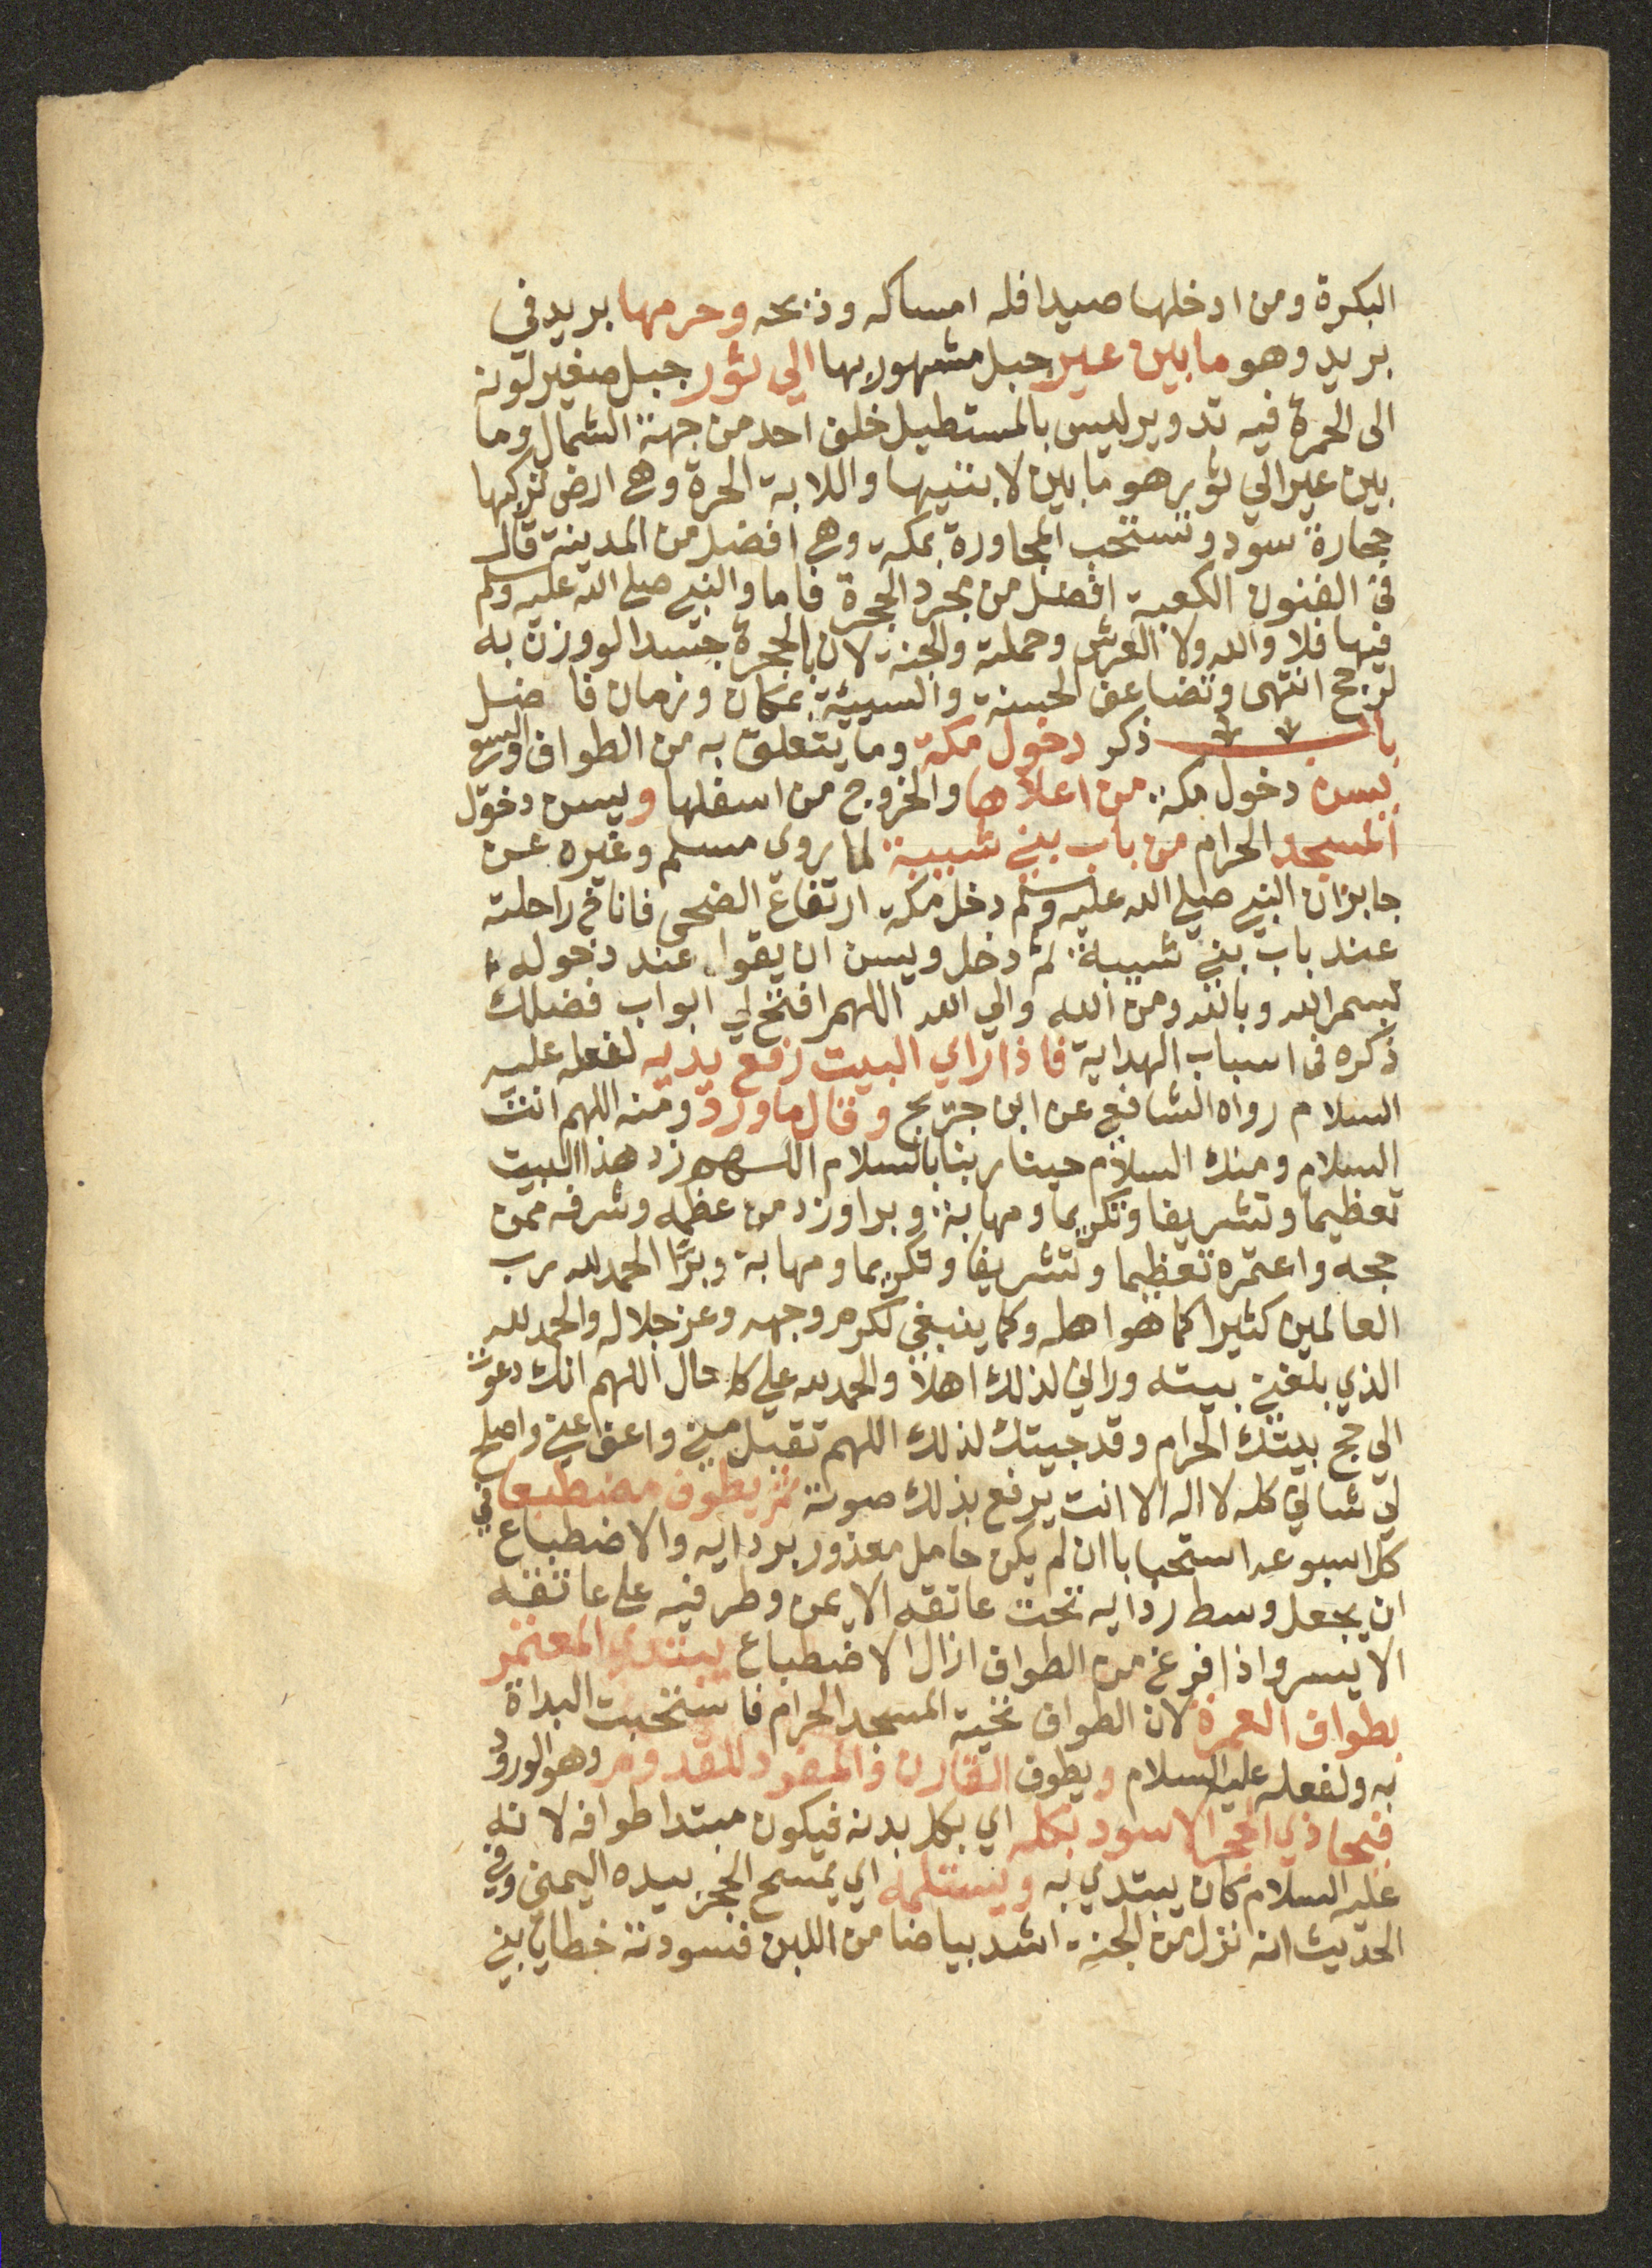 البكرة ومن ادخلها صيدا فله امساكه وذبحه وحرمها بريد في
بريد وهو ما بين عير جبل مشهور بها الي ثور جبل صغير لونه
الى الحمرة فيه تدوير ليس بالمستطيل خلف احد من جهة الشمال وما
بين عير الي ثور هو ما بين لابتيها واللابة الحرة وهي ارض تركبها
حجارة سود وتستحب المجاورة بمكة وهي افضل من المدينة قال
في الفنون الكعبة افضل من مجرد الحجرة فاما والنبي صلي الله عليه وسلم
فيها فلا والله ولا العرش وحملته والجنة لان بالحجرة جسدا لو وزن به
لرجح انتهى وتضاعف الحسنة والسيئة بمكان وزمان فاضل
باب ذكر دخول مكة وما يتعلق به من الطواف والسعي
يسن دخول مكة من اعلاها والخروج من اسفلها ويسن دخول
المسجد الحرام من باب بني شيبة لما روي مسلم وغيره عن
جابر ان النبي صلي الله عليه وسلم دخل مكة ارتفاع الضحى فاناخ راحلته
عند باب بني شيبة ثم دخل ويسن ان يقول عند دخوله
بسم الله وبالله ومن الله والي الله اللهم افتح لي ابواب فضلك
ذكره في اسباب الهداية فاذا راي البيت رفع يديه لفعله عليه
السلام رواه الشافعي عن ابن جريج وقال ما ورد ومنه اللهم انت
السلام ومنك السلام حينا ربنا بالسلام اللهم زد هذا البيت
تعظيما وتشريفا وتكريما ومهابة وبرا وزد من عظمه وشرفه ممن
حجه واعتمره تعظيما وتشريفا وتكريما ومهابة وبرًا الحمد لله رب
العالمين كثيرا كما هو اهله وكما ينبغي لكرم وجهه وعز جلاله والحمد لله
الذي بلغني بيته وراني لذلك اهلا والحمد لله علي كل حال اللهم انك دعوت
الي حج بيتك الحرام وقد جيتك لذلك اللهم تقبل مني واعف عني واصلح
لي شاني كله لا اله الا انت يرفع بذلك صوته ثم يطوف مضطبعا في
كل اسبوعه استحبابا ان لم يكن حامل معذور بردايه والاضطباع
ان يجعل وسط ردايه تحت عاتقه الايمن وطرفيه على عاتقه
الايسر واذا فرغ من الطواف ازال الاضطباع يبتدي المعتمر
بطواف العمرة لان الطواف تحية المسجد الحرام فاستحبت البداة
به ولفعله عليه السلام ويطوف القارن والمفرد للقدوم وهو الورود
فيحاذي الحجر الاسود بكله اي بكل بدنه فيكون مبتدا طوافه لانه
عليه السلام كان يبتدي به ويستلمه اي يمسح الحجر بيده اليمنى وفي
الحديث انه نزل من الجنة اشد بياضا من اللبن فسودته خطايا بني